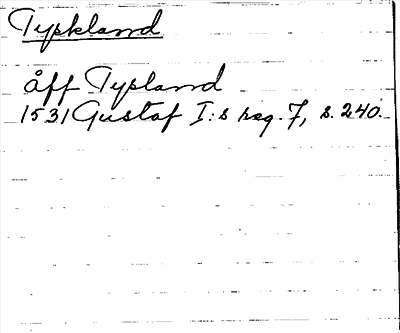 Typkland
åff Typland
1531 Gustaf I:s reg. 7, s. 240.